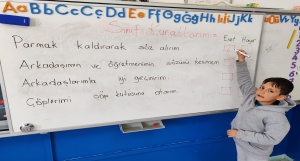 Aa Bb Cc Çç Dd Ee Ff Gg Ğğ Hh Iı İi Jj Kk
Sınıf Kurallarım
Evet Hayır
Parmak kaldırarak söz alırım.
Arkadaşımın ve öğretmenimin sözünü kesmem
Arkadaşlarımla iyi geçinirim.
Çöplerimi çöp kutusuna atarım.